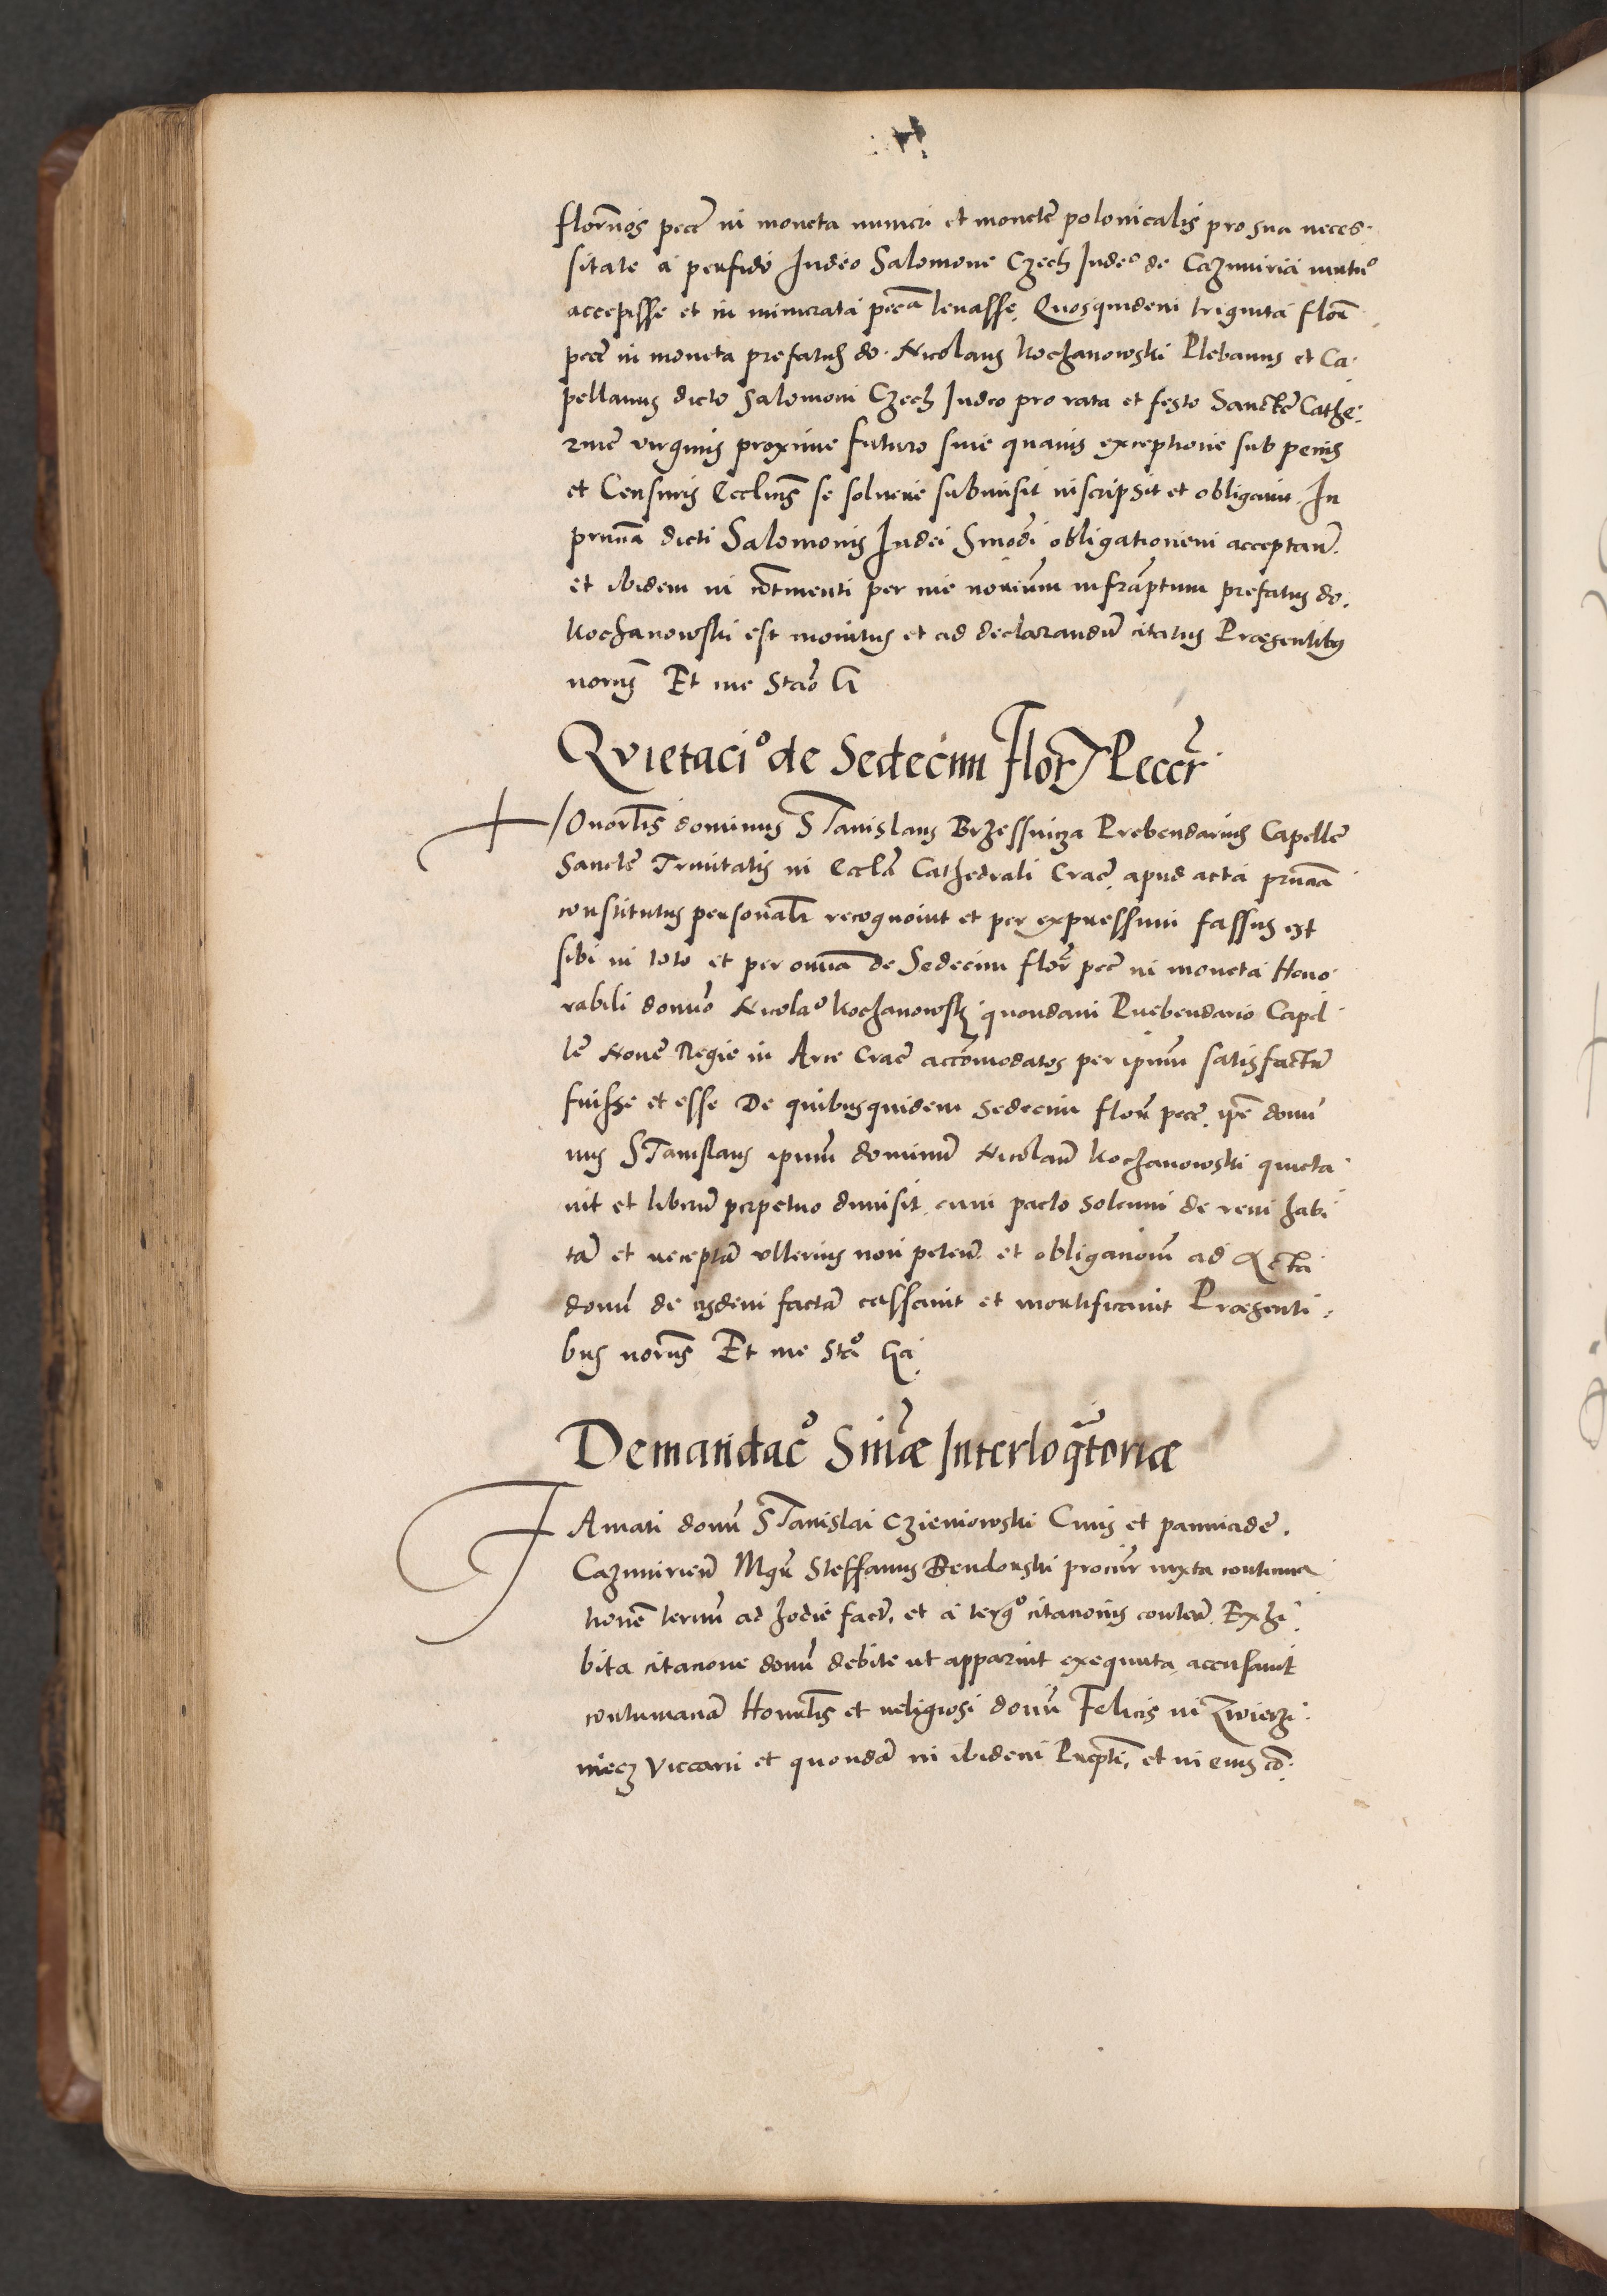 florenos pece in moneta numeri et monete polonicalis pro sua neces
sitate a perfido Judeo Salomone Czech Judeo de Cazmiria mutuo
accepisse et in numerata pecca levasse. Quosquidem triginta floñ
pece in moneta prefatus do. Nicolaus Kochanowski Plebanus et Ca
pellanus dicto Salomoni Czech Judeo pro rata et festo Sancte Cathe
rine virginis proxime futuro sine quavis exceptione sub penis
et Censuris Eccliñs se solvere submisit inscripsit et obligavit. In
pñtia dicti Salomonis Judei Smodi obligationem acceptañ.
et ibidem in cõtinenti per me notarium infrascriptum prefatus do.
Kochanowski est monitus et ad declarandũ citatus Præsentibus
notariis Et me Stão G
Qvietacio de Sedecim Flor Peccr
HOnorabilis dominus STanislaus Brzessnicza Prebendarius Capelle
Sancte Trinitatis in Eccla Cathedrali Crac. apud acta pñtia
constitutus personalr recognovit et per expressum fassus est
sibi in toto et per omnia de Sedecim flor pece in moneta Hono
rabili domino Nicolao Kochanowski quondam Prebendario Capel
le Nove Regie in Arce Crac accomodatos per ipsum satisfactũ
fuisse et esse De quibusquidem sedecim flor pece. ipse domi
nus STanislaus ipsum dominũ Nicolaũ Kochanowski quieta
vit et liberũ perpetuo dimisit. cum pacto solenni de rem habi
tã et receptã ulterius non petenda et obligationem ad Acta
domi de eisdem factã cassavit et mortificavit Præsenti
bus notariis Et me Stão Ga
Demandacio Sniæ Interloqutoriæ
FAmati domi STanislai Czieniowski Civis et pannicide.
Cazmirien Mgr Steffanus Bendonski procur iuxta continua
tionem termini ad hodie fact. et a tergo citationis conten. Exhi
bita citacione domi debite ut apparuit exequuta accusavit
contumaciã Honorabilis et religiosi domi Felicis in Zwierzi
niecz viccarii et quondã in ibidem Prepti. et in eius cõ